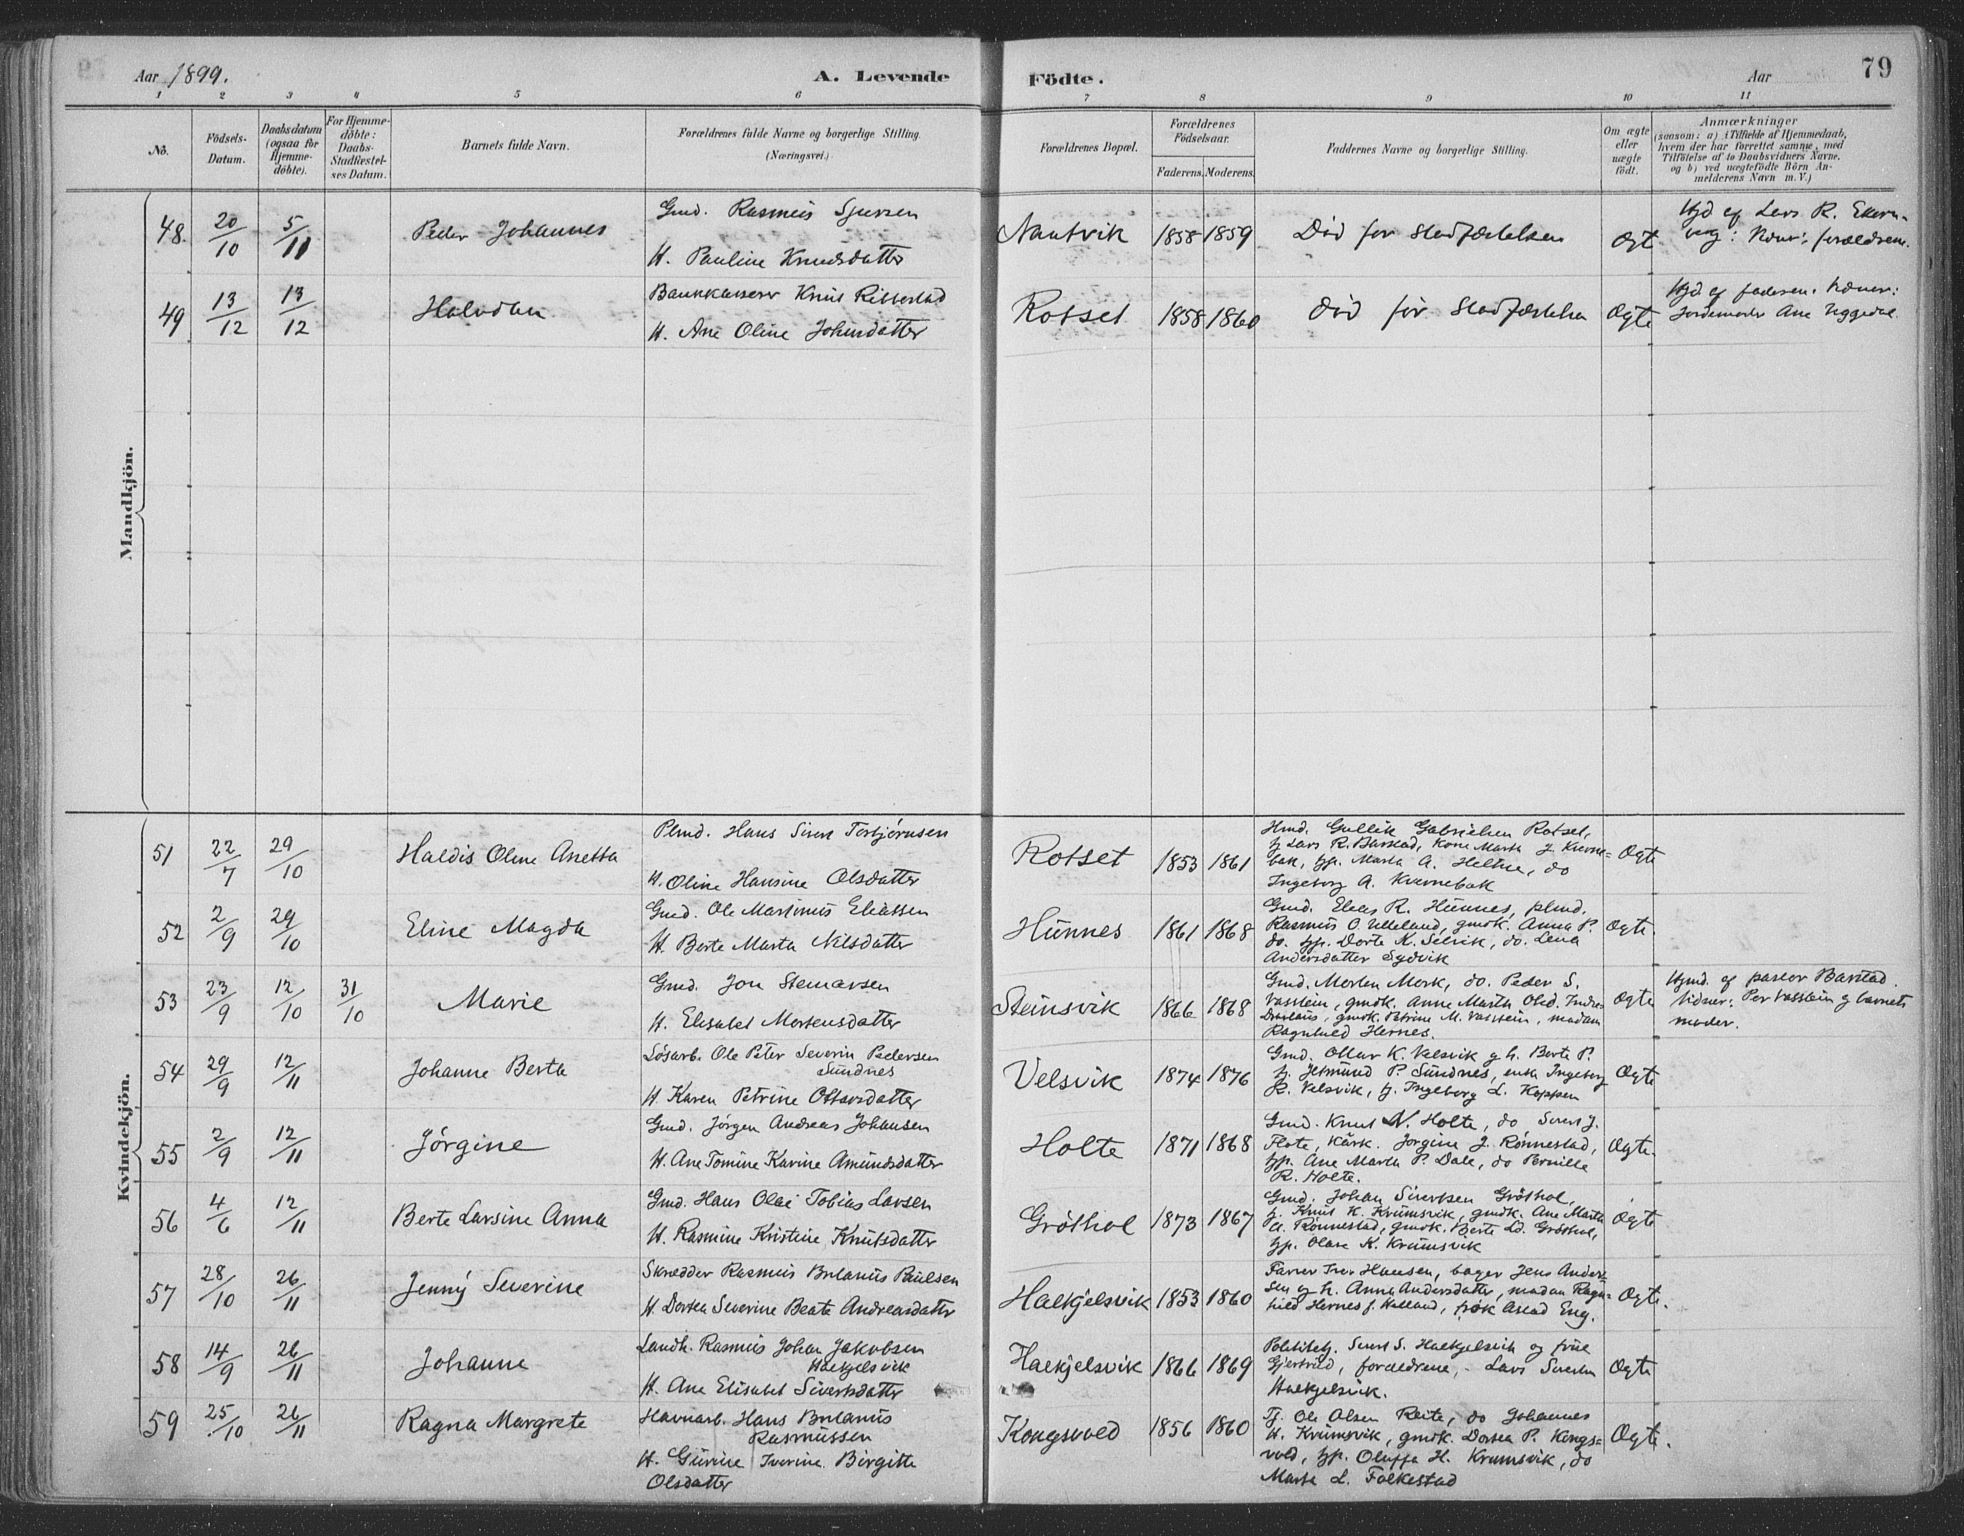 Aar 1899.
A. Levende
Födte.
Aar
79
1 2 3 4 5 6 7 8 9 10 11
No.
Födsels-
Datum.
Daabsdatum
(ogsaa for
Hjemme-
döbte).
For Hjemme-
döbte:
Daabs-
Stadfæstel-
ses Datum.
Barnets fulde Navn.
Forældrenes fulde Navne og borgerlige Stilling.
(Næringsvei.)
Forældrenes Bopæl.
Forældrenes
Födselsaar.
Faderens. Moderens.
Faddernes Navne og borgerlige Stilling.
Om ægte
eller
uægte
födt.
Anmærkninger
(saasom: a) i Tilfælde af Hjemmedaab,
hvem der har forrettet samme, med
Tilföielse af to Daabsvidners Navne.
og b) ved uægtefödte Börn An-
melderens Navn m. V.)
Mandkjön.
48. 20/10 5/11 Peder Johannes
Gmd. Rasmus Sjursen
H. Pauline Knudsdatter
Nautvik 1858 1859 Död før Stadfæstelsen Ægt
Hjd af Lars R.
forældrene.
49 13/12 13/12 Halvdan
Bankkasserer Knut Ritterstad
H. Ane Oline Johnsdatter
Rotset 1858 1860 Död før Stadfæstelse Ægte
Hjd af faderen.
Jordemoder Ane Uggedal
Kvindekjön.
51 22/7 29/10 Haldis Oline Anetta
Plmd. Hans Sivert Torbjörnsen
H. Oline Hansine Olsdatter
Rotset 1853 1861 Ægte
Hmd. Gullik Gabrielsen Rotset,
Lars R. Barstad, Kone Marta J. Kverne-
bak, pp. Marta A. Heltne, do
Ingeborg A. Kvernebak
52 2/9 29/10 Eline Magda
Gmd. Ole Martinus Eliassen
H. Berte Marta Nilsdatter
Hunnes 1861 1868 Ægte.
Gmd. Elias R. Hunnes, plmd.
Rasmus O. Ulleland, gmdk. Anna P.
do. pp. Dorte K. Selvik, do. Lena
Andersdatter Sydvik
53 23/9 12/10 31/10 Marie
Gmd. Jon Steinarsen
H. Elisabet Mortensdatter
Steinsvik 1866 1868 Ægte
Gmd. Morten Mork, do. Peder S.
Vasstein, gmdk. Anne Marta Olsd.
gmdk. Petrine M. Vasstein, madam
Ragnhild Hernes.
Hjmd. af pastor Barstad.
Vidner: Per Vasstein og barnets
moder.
54 29/9 12/11 Johanne Berta
Lösarb. Ole Peter Severin Pedersen
Sundnes
H. Karen Petrine Ottarsdatter
Velsvik 1874 1876 Ægte
Gmd. Ottar K. Velsvik og h. Berte P.
Jetmund P. Sundnes, enke Ingeborg
R. Velsvik, Ingeborg L. Koppen
55 2/9 12/11 Jörgine
Gmd. Jörgen Andreas Johansen
H. Ane Tomine Karine Amundsdatter
Holte 1871 1868 Ægte.
Gmd. Knut N. Holte, do Sivert J.
Flote, Kårk. Jorgine J. Rönnestad,
pp. Ane Marta P. Dale, do Pernille
R. Holte.
56 4/6 12/11 Berte Larsine Anna
Gmd. Hans Olai Tobias Larsen
H. Rasmine Kristine Knutsdatter
Gröthol 1873 1867 Ægte
Gmd. Johan Sivertsen Gröthol,
Knut K. Krumsvik, gmdk. Ane Marta
A. Rönnestad, gmdk. Berte Ld. Gröthol,
pp. Olave K. Krumsvik
57 28/10 26/11 Jenny Severine
Skrædder Rasmus Brlanus Paulsen
H. Dortea Severine Beate Andreasdatter
Hækjelsvik 1853 1860 Ægte.
Farver Iver Hansen, bager Jens Ander-
sen og h. Anna Andersdatter, madam Ragn-
hild Hernes f. Kalland, frök Aslad Eng.
58 14/9 26/11 Johanne
Landh. Rasmus Johan Jakobsen
Hækjelsvik
H. Ane Elisabet Sivertsdatter
Hækjelsvik 1866 1869 Ægte
Politibetj. Sivert S. Hækjelsvik og frue
Gjertrud, forældrene, Lars Sivertsen
Hækjelsvik.
59 25/10 26/11 Ragna Margrete
Havnarb. Hans Brlanus
Rasmussen
H. Gurine Iverine Birgitte
Olsdatter
Kongsvold 1856 1860 Ægte.
Tj. Ole Olsen Reite, do Johannes
H. Krumsvik, gmdk. Dortea P. Kongs-
vold, pp. Oluffa H. Krumsvik, do
Marta L. Folkestad